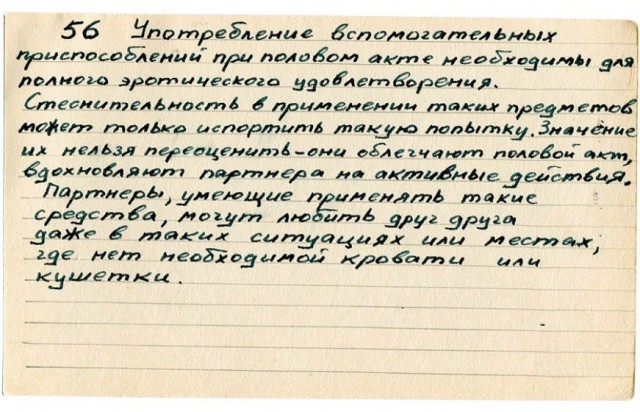 56 Употребление вспомогательных
приспособлений при половом акте необходимы для
полного эротического удовлетворения.
Стеснительность в применении таких предметов
может только испортить такую попытку. Значение
их нельзя переоценить - они облегчают половой акт,
вдохновляют партнера на активные действия.
Партнеры, умеющие применять такие
средства, могут любить друг друга
даже в таких ситуациях или местах,
где нет необходимой кровати или
кушетки.